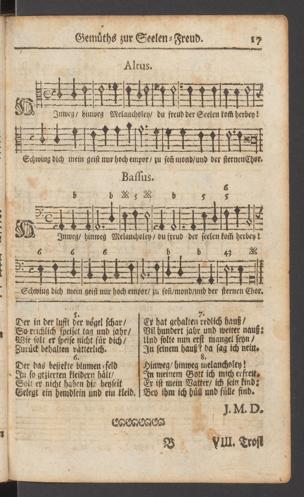 Gemüths zur Seelen-Freud. 17
Altus.
Hinweg/ hinweg Melancholey/ du freud der Seelen kom herbey!
Schwing dich mein geist nur hoch empor/ zu soñ mond/und der sternen Chor.
Bassus.
b b 5 5 6 6
Hinweg/ hinweg Melancholey/ du freud der seelen kom herbey!
6 6 6 b b 43
Schwing dich mein geist nur hoch empor/ zu soñ/mond/und der sternen Chor.
5.
Der in der lufft der vögel schar/
So reichlich speiset tag und jahr/
Wie solt er speise nicht für dich/
Zurück behalten vätterlich.
6.
Der das beseelte blumen-feld
In so gezierten kleidern hält/
Solt er nicht haben die beyseit
Gelegt ein hemdlein und ein kleid.
7.
Er hat gehalten redlich hauß/
Vil hundert jahr und weiter nauß;
Und solte nun erst mangel seyn/
In seinem hauß? da sag ich nein.
8.
Hinweg/ hinweg melancholey!
In meinem Gott ich mich erfreü.
Er ist mein Vatter/ ich sein kind;
Bey ihm ich hüll und fülle find.
J. M. D.
B VIII. Trost